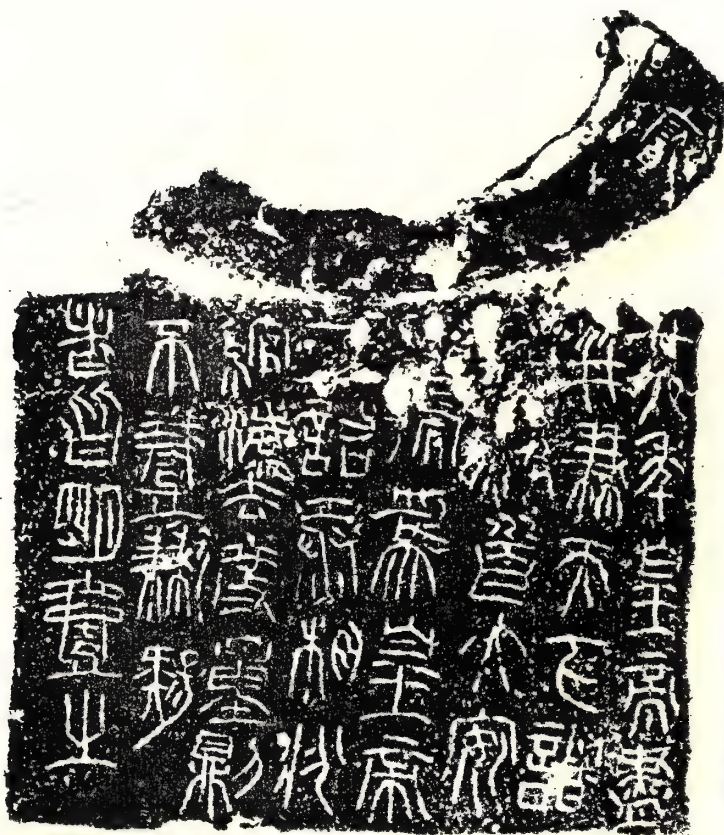 廿六年皇帝盡
并兼天下諸
黔首大安
號為皇帝
乃詔丞相狀
綰灋度量則
不壹歉疑
者皆明壹之